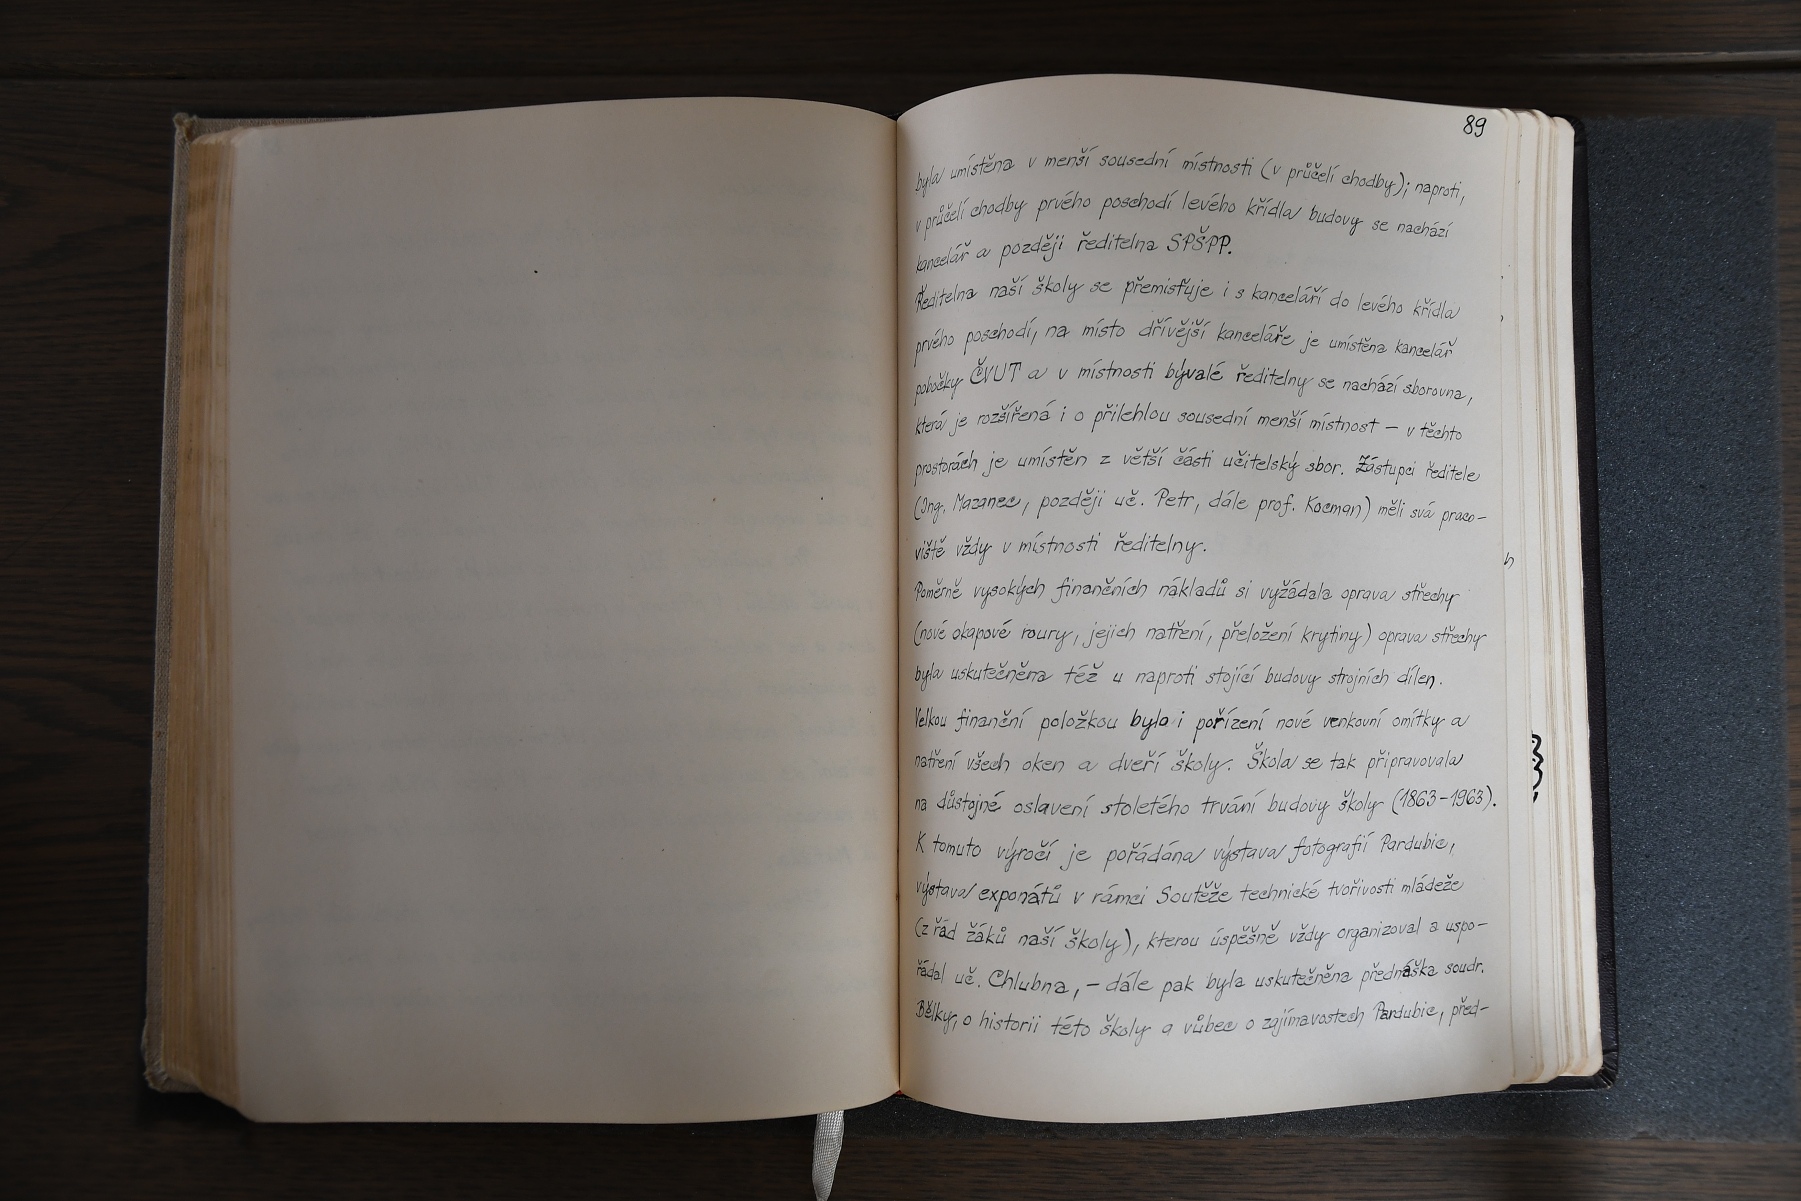 89
byla umístěna v menší sousední místnosti (v průčelí chodby); naproti,
v průčelí chodby prvého poschodí levého křídla budovy se nachází
kancelář a později ředitelna SPŠPP.
Ředitelna naší školy se přemisťuje i s kanceláří do levého křídla
prvého poschodí, na místo dřívější kanceláře je umístěna kancelář
pobočky ČVUT a v místnosti bývalé ředitelny se nachází sborovna,
která je rozšířená i o přilehlou sousední menší místnost – v těchto
prostorách je umístěn z větší části učitelský sbor. Zástupci ředitele
(Ing. Mazanec, později uč. Petr, dále prof. Kocman) měli svá praco-
viště vždy v místnosti ředitelny.
Poměrně vysokých finančních nákladů si vyžádala oprava střechy
(nové okapové roury, jejich natření, přeložení krytiny) oprava střechy
byla uskutečněna též u naproti stojící budovy strojních dílen.
Velkou finanční položkou bylo i pořízení nové venkovní omítky a
natření všech oken a dveří školy. Škola se tak připravovala
na důstojné oslavení stoletého trvání budovy školy (1863–1963).
K tomuto výročí je pořádána výstava fotografií Pardubic,
výstava exponátů v rámci Soutěže technické tvořivosti mládeže
(z řad žáků naší školy), kterou úspěšně vždy organizoval a uspo-
řádal uč. Chlubna, – dále pak byla uskutečněna přednáška soudr.
Bělky, o historii této školy a vůbec o zajímavostech Pardubic, před-